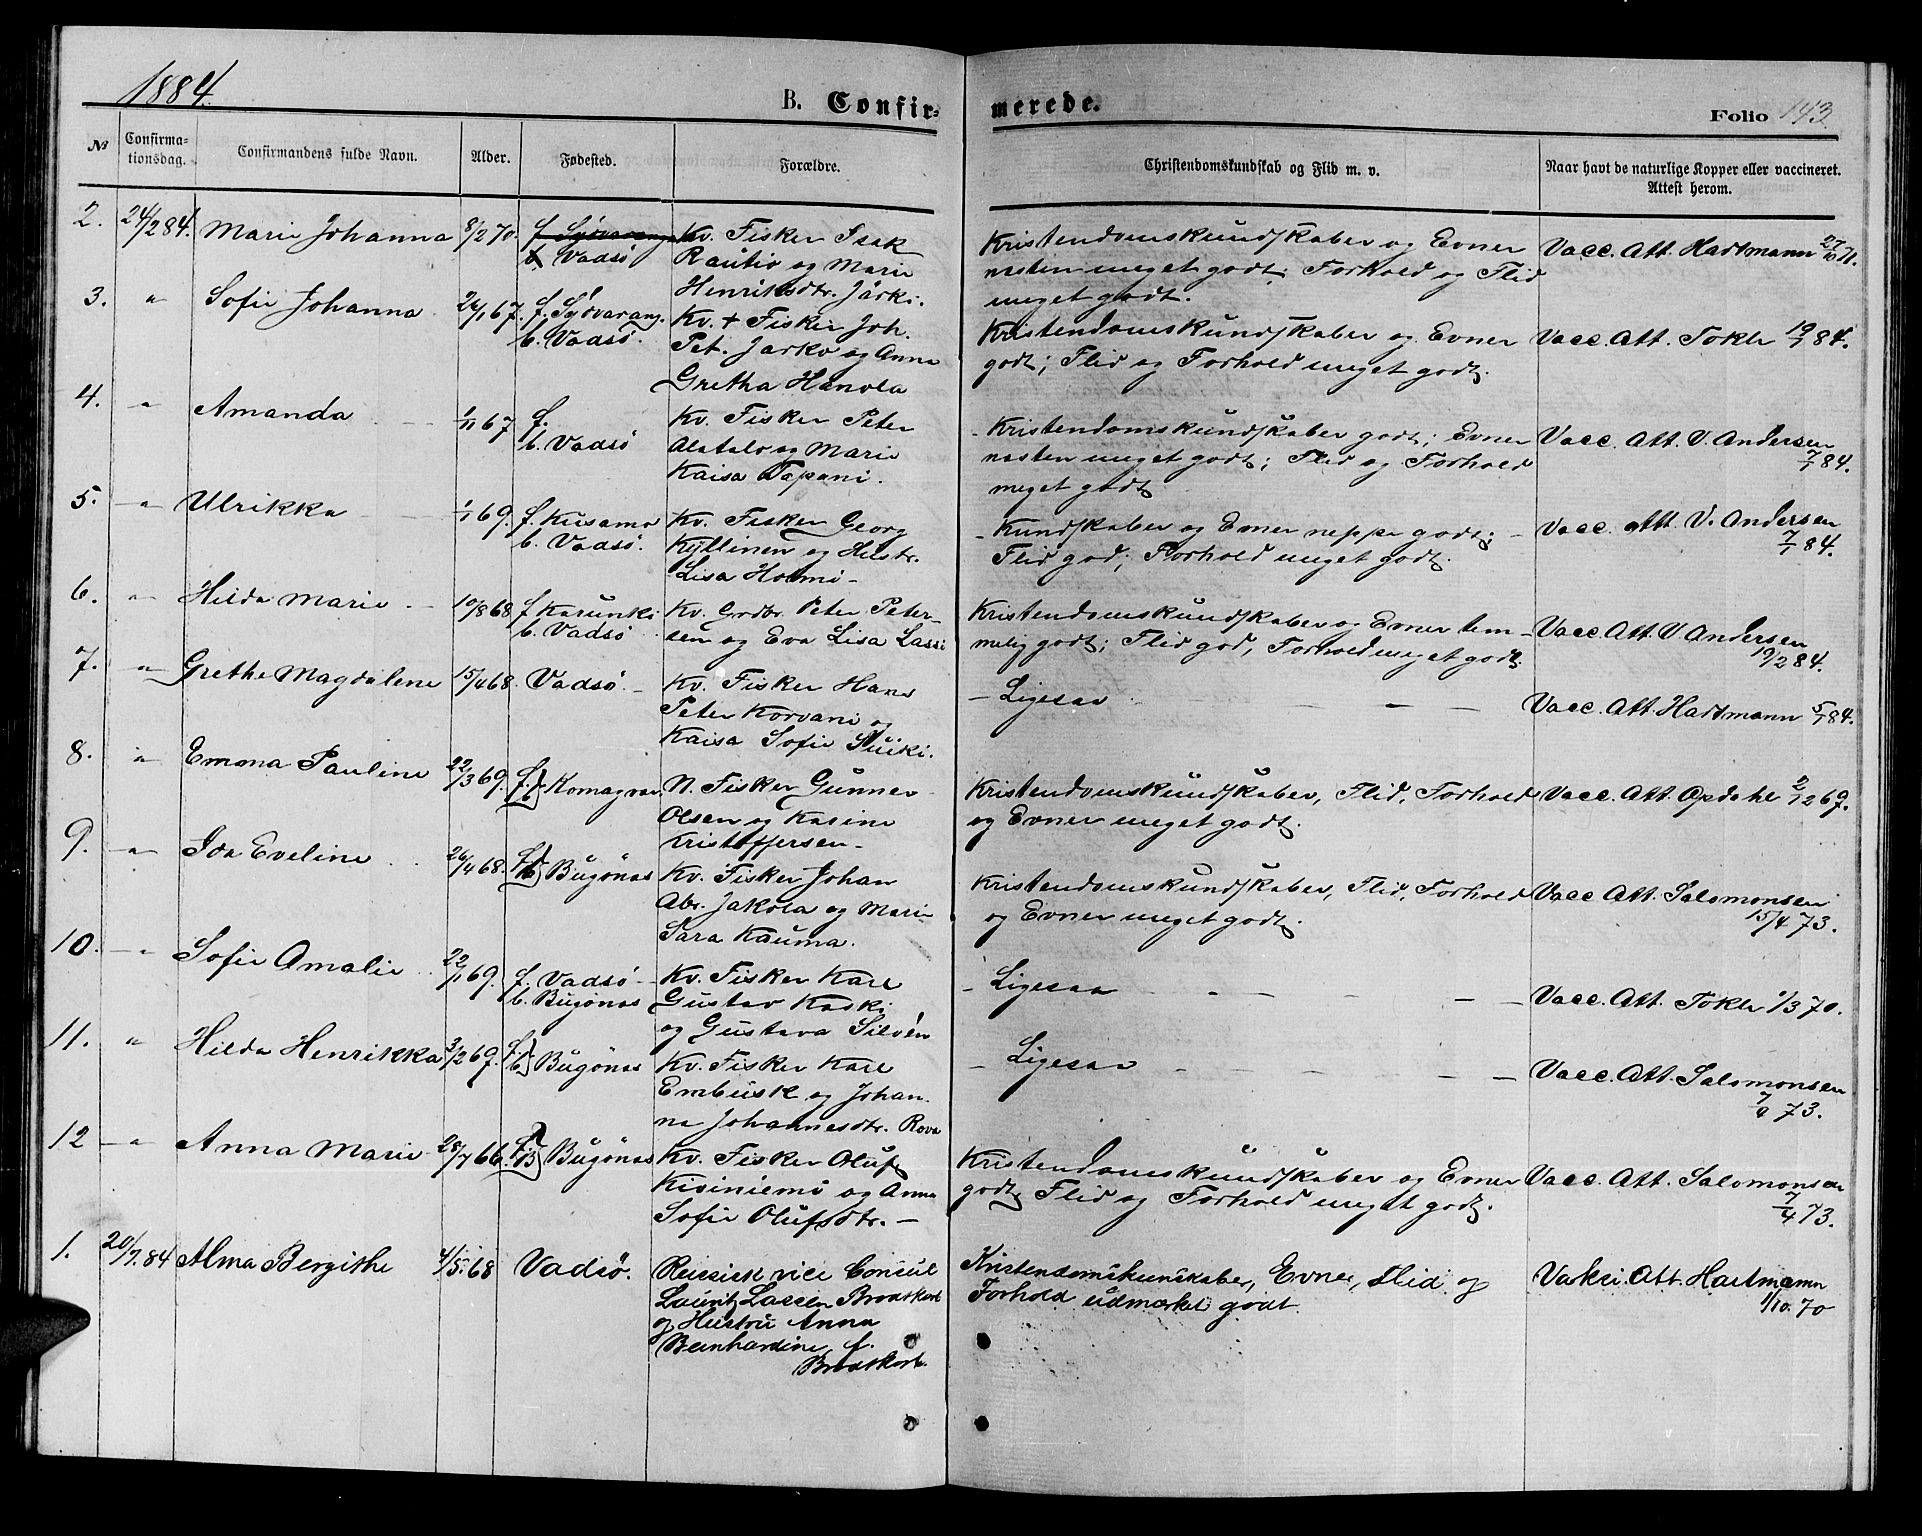 1884.
B. Confir-
merede.
Folio 143
№
Confirma-
tionsdag.
Confirmandens fulde Navn.
Alder.
Fødested.
Forældre.
Christendomskundskab og Flid m. v.
Naar havt de naturlige Kopper eller vaccineret.
Attest herom.
2. 24/2 84. Marie Johanna 8/2 70. f. Sydvarang. Kv. Fisker Isak
b. Vadsö Rautio og Marie
Henriksdtr. Järki.
Kristendomskundskaber og Evner
næsten meget godt; Forhold og Flid
meget godt.
Vacc. Att. Hartmann 27/10 71.
3. " Sofie Johanna 24/1 67. f. Sydvarang. Kv. + Fisker Joh.
b. Vadsö. Pet. Jarko og Anna
Gretha Hanola
Kristendomskundskaber og Evner
godt; Flid og Forhold meget godt.
Vacc. Att. Tokle 19/1 84.
4. " Amanda 1/11 67 f. Kv. Fisker Peter
b. Vadsö Alatalo og Marie
Kaisa Tapani.
Kristendomskundskaber godt; Evner
næsten meget godt; Flid og Forhold
meget godt
Vacc. Att. V. Andersen
7/1 84.
5. " Ulrikka 1/1 69. f. Kusamo Kv. Fisker Georg
b. Vadsö. Kyllinen og Hustr.
Lisa Hormi
Kundskaber og Evner neppe godt;
Flid god; Forhold meget godt.
Vacc. Att. V. Andersen
7/1 84.
6. " Hilda Marie 10/8 68. f Karunki Kv. Grdbr. Peter Peter-
b. Vadsö sen og Eva Lisa Lassi
Kristendomskundskaber og Evner tem-
melig godt; Flid god, Forhold meget godt.
Vacc. Att. V Andersen
19/2 84.
7. " Grethe Magdalene 15/4 68. Vadsö. Kv. Fisker Hans
Peter Korvani og
Kaisa Sofie Suiki.
Ligesaa
Vacc. Att. Hartmann 5/1 84.
8. " Emma Pauline 22/3 69. f. b. Komagvær N. Fisker Gunner
Olsen og Karine
Kristoffersen
Kristendomskundskaber, Flid, Forhold
og Evner meget godt.
Vacc. Att. Opdahl 2/12 69.
9. " Ida Eveline 26/4 68. f. b. Bugönæs Kv. Fisker Johan
Abr. Jakola og Marie
Sara Kauma.
Kristendomskundskaber, Flid, Forhold
og Evner meget godt.
Vacc. Att. Salomonsen
15/4 73.
10. " Sofie Amalie 22/1 69. f. Vadsö Kv. Fisker Karl
b. Bugönæs Gustav Koski
og Gustava Silvén
Ligesaa
Vacc. Att. Tokle 1/3 70.
11. " Hilda Henrikka 3/2 69. f. b. Bugönæs Kv. Fisker Karl
Embusk og Johan
na Johannesdtr. Rova
Ligesaa
Vacc. Att. Salomonsen
7/4 73.
12 " Anna Marie 28/7 66. f. B Bugönæs Kv. Fisker Oluf
Kisiniemi og Anna
Sofie Olufsdtr.
Kristendomskundskaber og Evner
godt; Flid og Forhold meget godt.
Vacc. Att. Salomonsen
7/4 73.
1. 20/7. 84 Alma Bergithe 4/5. 68 Vadsö. vice Consul
Lauritz Lassen Brodtkorb
og Hustru Anna
Bernhardine f.
Brodtkorb.
Kristendomskunskaber, Evner, Flid og
Forhold udmærket godt
Vakci. Att. Hartmann
1/10. 70